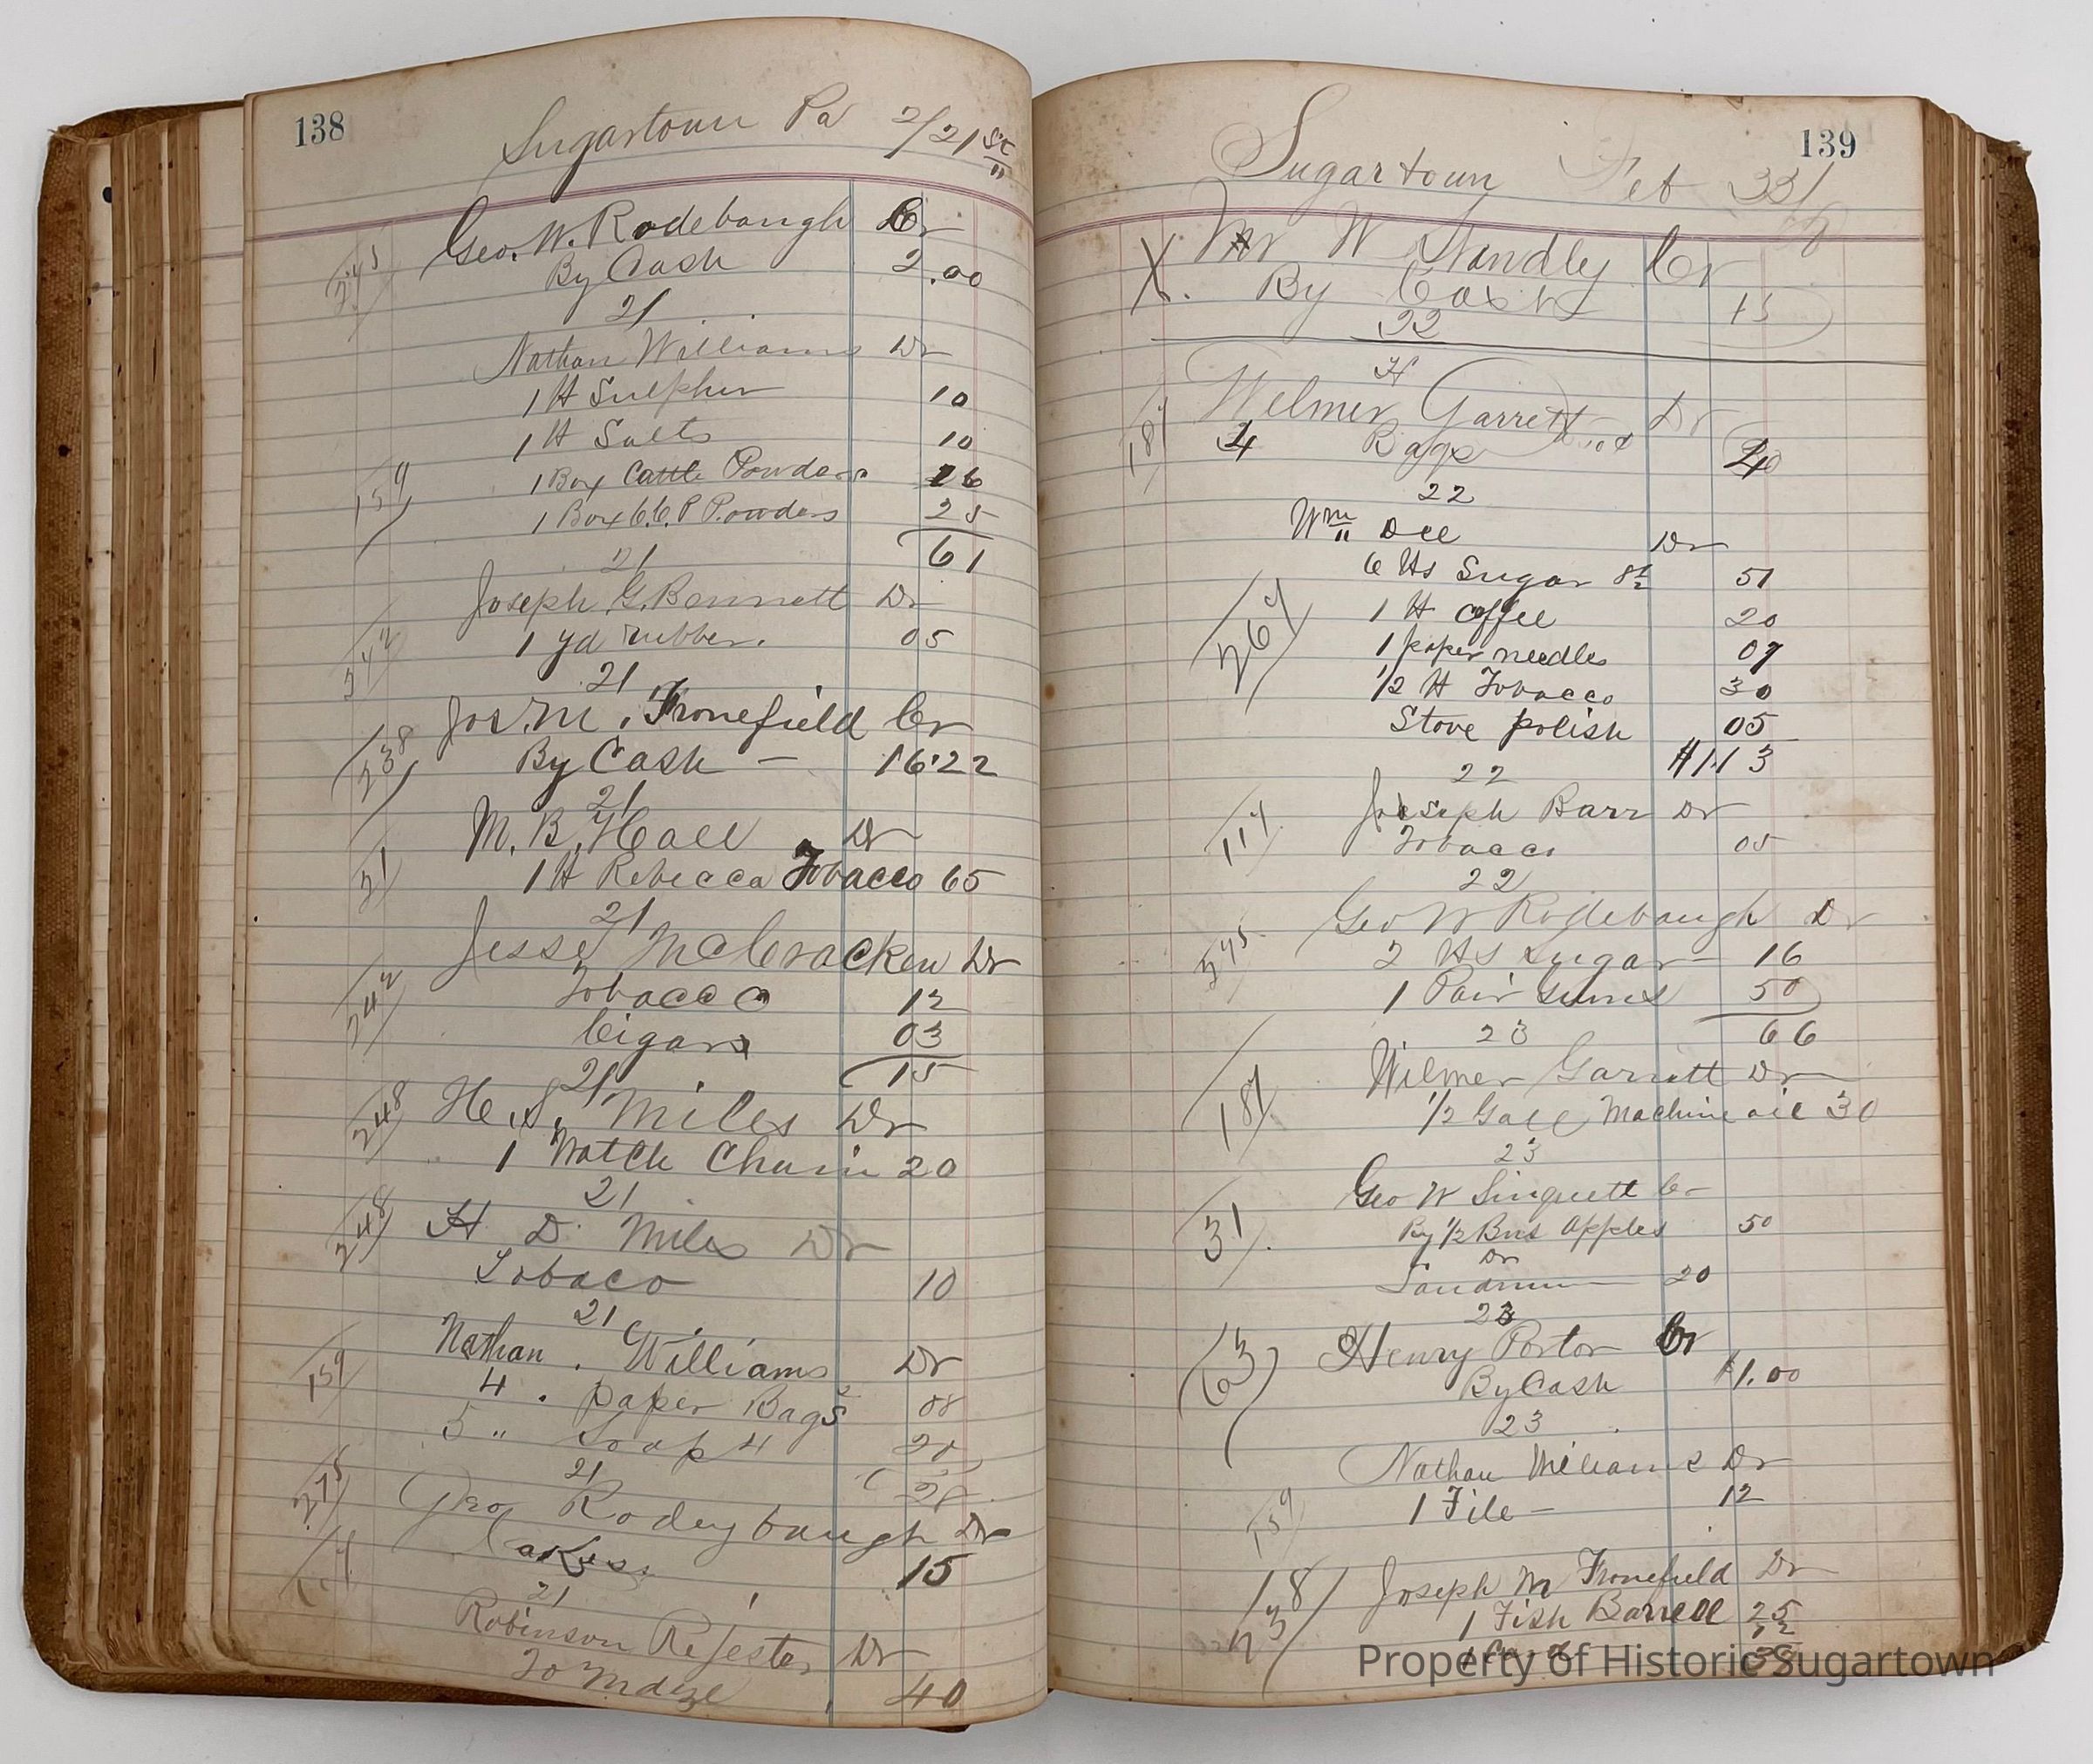 138
Sugartown Pa 2/21st
Geo. W. Rodebaugh Cr
By Cash 2.00
21
Nathan Williams Dr
1 H Sulpher 10
1 H Salts 10
159
1 Box Cattle Powders 16
1 Box C.C.P Powders 25
61
21
Joseph G. Bennett Dr
1 yd rubber. 05
21
Jos. M. Fronefield Cr
238
By Cash — 16.22
21
M. B. Hall Dr
1 H Rebecca Tobacco 65
21
Jesse McCracken Dr
242
Tobacco 12
Cigars 03
15
21
248
H. S. Miles Dr
1 Watch Chain 20
21
248
H. D. Miles Dr
Tobaco 10
21
Nathan. Williams Dr
159
4. paper Bags 2 08
5 " Soap 4 20
28
21
275
Geo Rodeybaugh Dr
Cakes. 15
21
Robinson Dr
To 40
139
Sugartown Feb
X Mr W Handley Cr
X. By Cash 15
22
Wilmer Garrett Dr
187
4 Bags
22
Wm Dee Dr
6 Hs Sugar 8½ 51
1 H Coffee 20
267
1 paper needles 07
1/2 H Tobacco 30
Stove polish 05
$1.13
22
Joseph Barr Dr
117
Tobacco 05
22
Geo W Rodebaugh Dr
2 Hs Sugar — 16
1 Pair Gums 50
66
23
Wilmer Garrett Dr
187
1/2 Gall Machine oil 30
23
Geo W Singuett Cr
31.
By 1/2 Bus Apples 50
Dr
20
23
63
Henry Porter Cr
By Cash $1.00
23
Nathan Williams Dr
159
1 File — 12
18
Joseph M Fronefield Dr
238
1 Fish Barrell 25
Property of Historic Sugartown